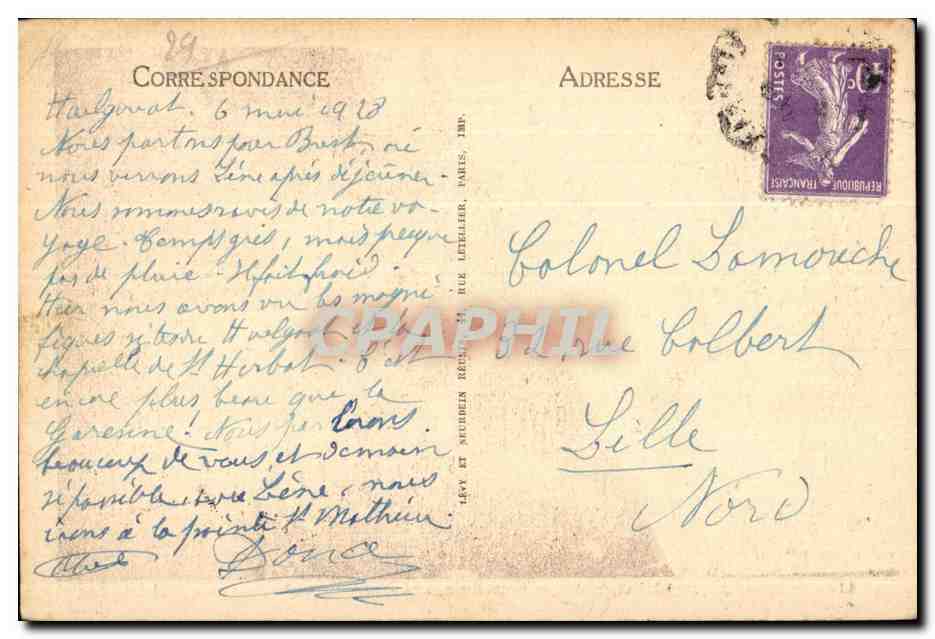 29
CORRESPONDANCE
Huelgoat. 6 mai 1928
Nous partons pour Brest, où
nous verrons Lène après déjeuner.
Nous sommes ravis de notre vo-
yage. Temps gris, mais presque
pas de pluie. Il fait froid.
Hier nous avons vu les magni-
fiques sites de Huelgoat et la
chapelle de St Herbot. C'est
encore plus beau que la
Garenne! Nous parlerons
beaucoup de vous, et demain
si possible, avec Lène, nous
irons à la pointe St Mathieu.
Dona
LÉVY ET NEURDEIN RÉUNIS, 44, RUE LETELLIER, PARIS, IMP.
ADRESSE
POSTES
RÉPUBLIQUE FRANÇAISE
Colonel Lamouche
rue Colbert
Lille
Nord
CPAPHIL